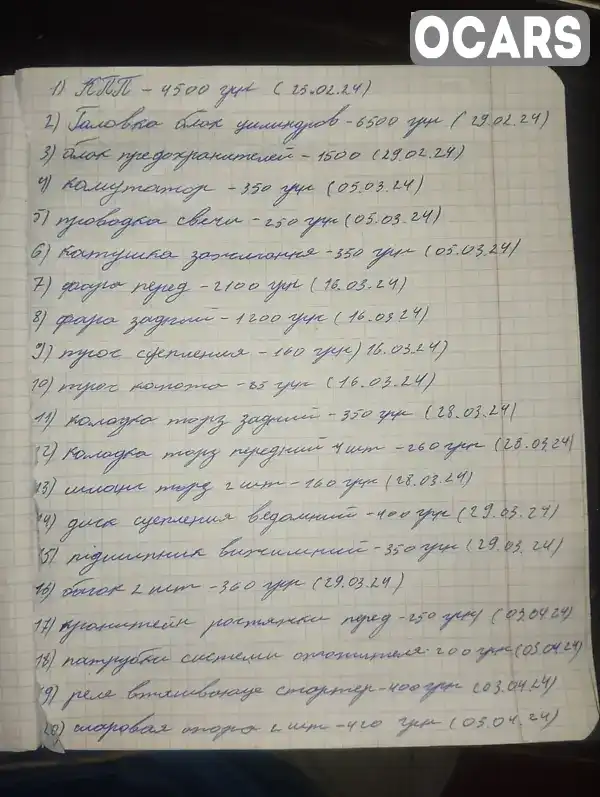 OCARS
1) КПП - 4500 грн (25.02.24)
2) Головка блок цилиндров - 6500 грн (29.02.24)
3) блок предохранителей - 1500 (29.02.24)
4) комутатор - 350 грн (05.03.24)
5) проводка свечи - 250 грн (05.03.24)
6) катушка зажигання - 350 грн (05.03.24)
7) фара перед - 2100 грн (16.03.24)
8) фара задний - 1200 грн (16.03.24)
9) трос сцепления - 160 грн) 16.03.24)
10) трос капота - 85 грн (16.03.24)
11) колодка торз задний - 350 грн (28.03.24)
12) колодка торз передний 4 шт - 260 грн (28.03.24)
13) шланг торз 2 шт - 160 грн (28.03.24)
14) диск сцепления ведомний - 400 грн (29.03.24)
15) підшипник вижимний - 350 грн (29.03.24)
16) бачок 2 шт - 360 грн (29.03.24)
17) кронштейн ростяжки перед - 250 грн (03.04.24)
18) патрубки системи отопителя - 200 грн (03.04.24)
19) реле втягивающе стартер - 400 грн (03.04.24)
20) шаровая опора 2 шт - 420 грн (03.04.24)